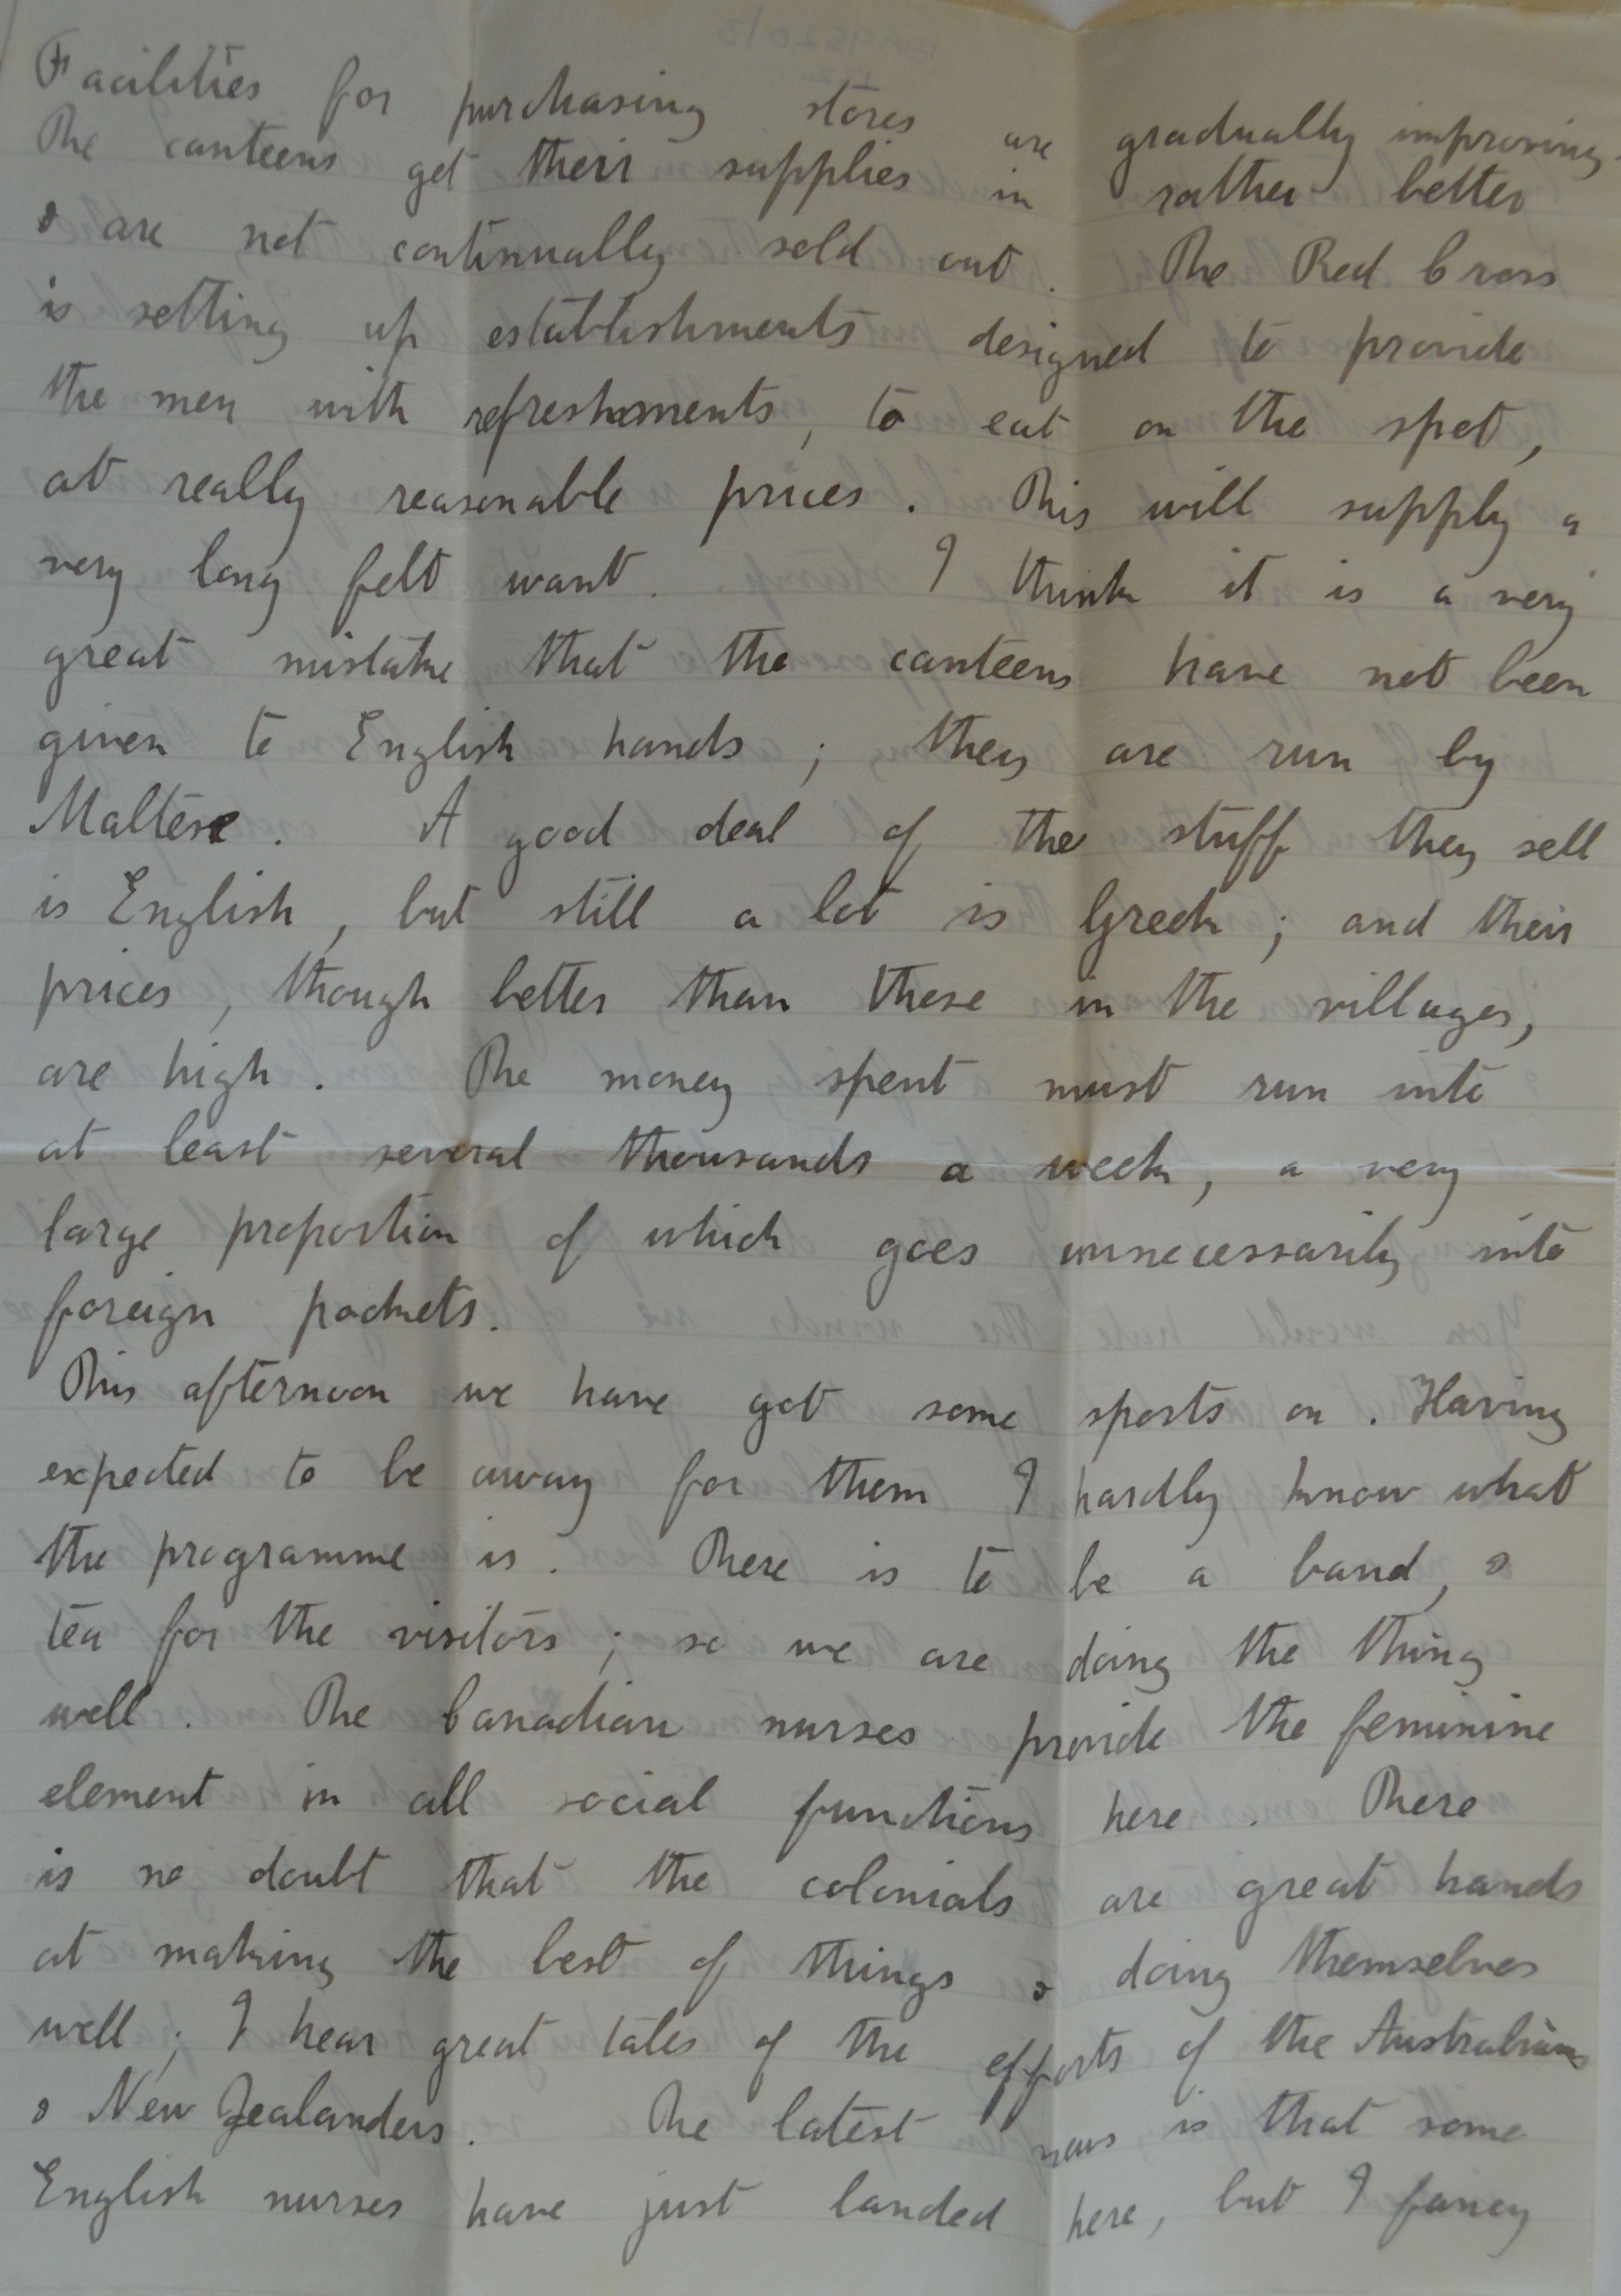 Facilities for purchasing stores are gradually improving.
The canteens get their supplies in rather better
& are not continually sold out. The Red Cross
is setting up establishments designed to provide
the men with refreshments, to eat on the spot,
at really reasonable prices. This will supply a
very long felt want. I think it is a very
great mistake that the canteens have not been
given to English hands; they are run by
Maltese. A good deal of the stuff they sell
is English, but still a lot is Greek; and their
prices, though better than those in the villages,
are high. The money spent must run into
at least several thousands a week, a very
large proportion of which goes unnecessarily into
foreign pockets.
This afternoon we have got some sports on. Having
expected to be away for them I hardly know what
the programme is. There is to be a band, &
tea for the visitors; so we are doing the thing
well. The Canadian nurses provide the feminine
element in all social functions here. There
is no doubt that the colonials are great hands
at making the best of things & doing themselves
well; I hear great tales of the efforts of the Australians
& New Zealanders. The latest news is that some
English nurses have just landed here, but I fancy